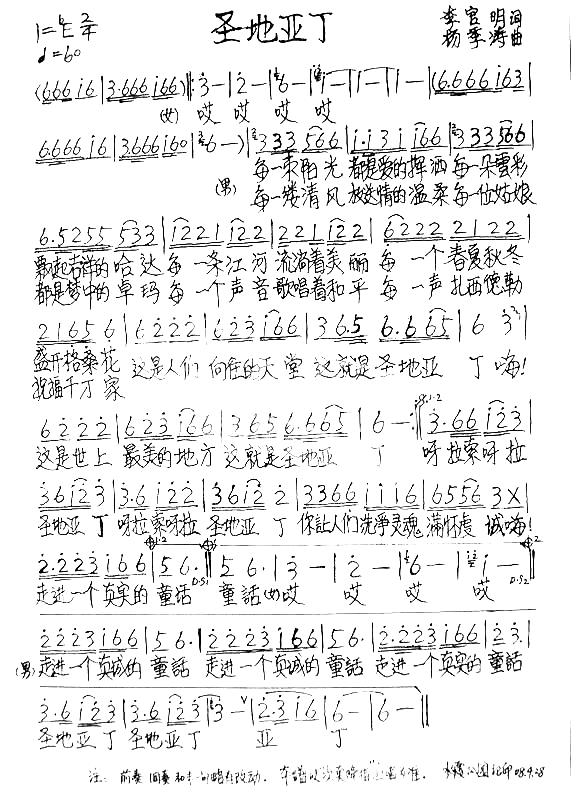 1=♭E 2/4
圣地亚丁
李官明 词
♩=60
杨季涛 曲
(666 1̇6|3·666 1̇66)‖:3̇—|2̇—|6—|1̇—|1̇—|1̇—|(6·666 1̇63|
(女) 哎 哎 哎 哎
6·666 1̇6|3·666 1̇60|6—)|3 33 566|1̇·1̇3 1̇ 1̇66|3 33 566|
每一束阳光 都是爱的挥洒 每一朵雲彩
(男) 每一缕清风 放送情的温柔 每一位姑娘
6·5255 533|1̇221 1̇22|221 1̇22|6222 2122|
飘起吉祥的 哈达 每一条江河 流淌着美丽 每一个春夏秋冬
都是梦中的 卓玛 每一个声音 歌唱着和平 每一声扎西德勒
2165 6|6222|623 1̇66|3 6·5 6·665|6 3|
盛开格桑花 这是人们 向往的天堂 这就是圣地亚 丁 嗨!
祝福千万家
6222|623 1̇66|365 6·665|6—:‖3·66 1̇23|
这是世上 最美的地方 这就是圣地亚 丁 呀拉索呀拉
361̇2 3|3·6 1̇22|361̇2 2|3366 1̇1̇1̇6|6556 3X|
圣地亚 丁 呀拉索呀拉 圣地亚 丁 你让人们洗净灵魂 满怀虔 诚嗨!
2·223 1̇66|56·|56·|3̇—|2̇—|6—|1̇—‖
走进一个真实的 童话 童話 (女)哎 哎 哎 哎
2223 1̇66|56·|2223 1̇66|56·|2·223 1̇66|23·|
(男)走进一个真诚的 童話 走进一个真诚的 童話 走进一个真实的 童話
3·6 1̇23|3·6 1̇23|3—|2·3 1̇6|6—|6—‖
圣地亚 丁 圣地亚丁 亚 丁
注: 前奏 间奏和